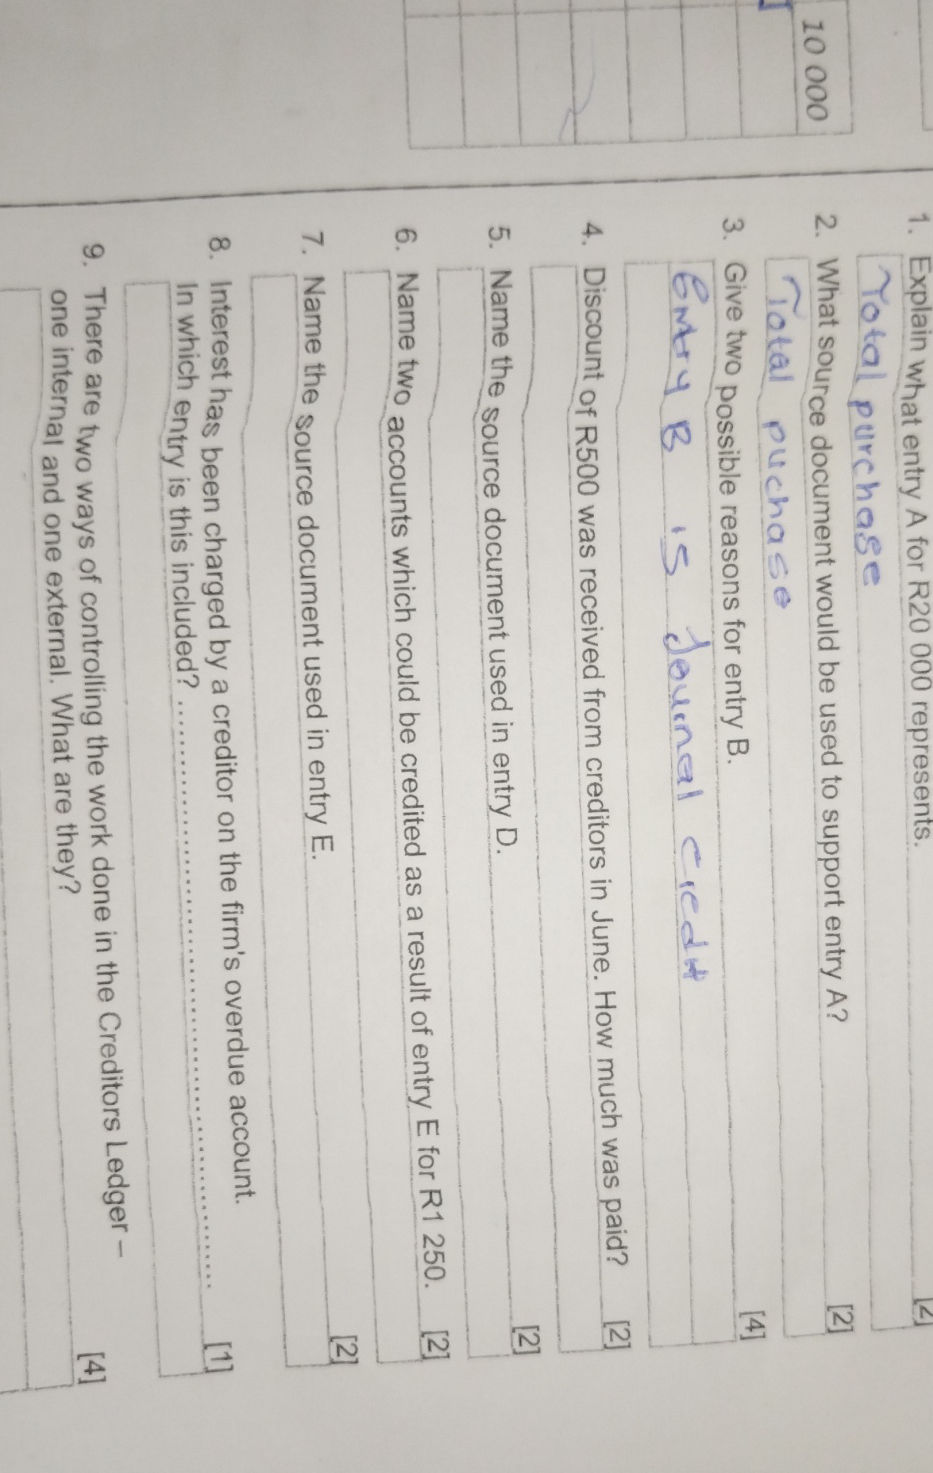 10 000
1. Explain what entry A for R20 000 represents.
Total purchase
2. What source document would be used to support entry A? [2]
Total puchase
3. Give two possible reasons for entry B. [4]
Entry B is Journal credit
4. Discount of R500 was received from creditors in June. How much was paid? [2]
5. Name the source document used in entry D. [2]
6. Name two accounts which could be credited as a result of entry E for R1 250. [2]
7. Name the source document used in entry E. [2]
8. Interest has been charged by a creditor on the firm's overdue account.
In which entry is this included? ........................................................ [1]
9. There are two ways of controlling the work done in the Creditors Ledger –
one internal and one external. What are they? [4]